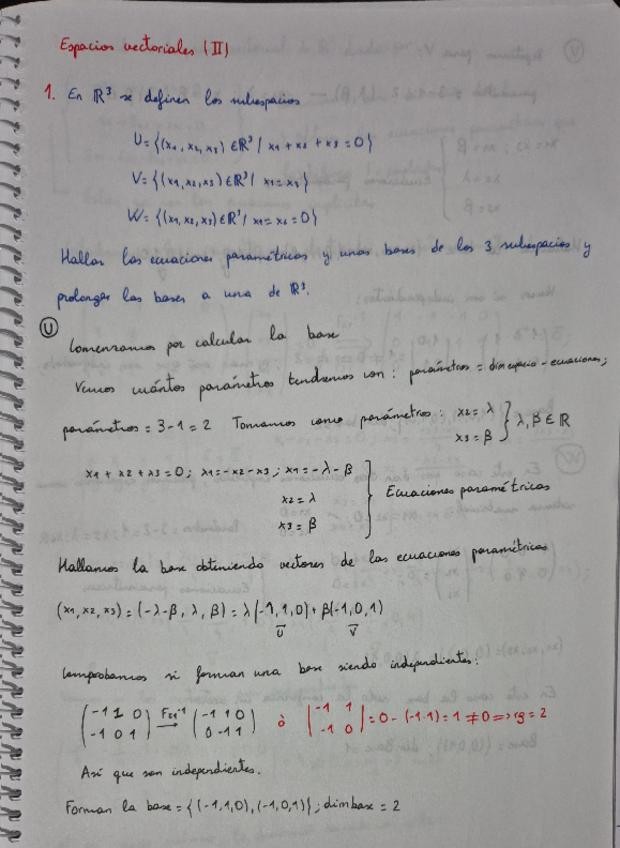 Espacios vectoriales (II)
1. En ℝ³ se definen los subespacios
U = {(x1, x2, x3) ∈ ℝ³ / x1 + x2 + x3 = 0}
V = {(x1, x2, x3) ∈ ℝ³ / x1 = x3}
W = {(x1, x2, x3) ∈ ℝ³ / x1 = x2 = 0}
Hallar las ecuaciones paramétricas y unas bases de los 3 subespacios y
prolongar las bases a una de ℝ³.
U Comenzamos por calcular la base
Vemos cuántos parámetros tendremos con: parámetros = dim espacio - ecuaciones;
parámetros = 3-1 = 2 Tomamos como parámetros: x2 = λ
x3 = β } λ, β ∈ ℝ
x1 + x2 + x3 = 0; x1 = -x2 - x3; x1 = -λ - β
x2 = λ
x3 = β } Ecuaciones paramétricas
Hallamos la base obteniendo vectores de las ecuaciones paramétricas
(x1, x2, x3) = (-λ-β, λ, β) = λ(-1,1,0) + β(-1,0,1)
U V
Comprobamos si forman una base siendo independientes:
(-1 1 0
-1 0 1) F21⁻¹ → (-1 1 0
0 -1 1) ò |-1 1
-1 0| = 0 - (-1·1) = 1 ≠ 0 => rg = 2
Así que son independientes.
Forman la base = {(-1,1,0), (-1,0,1)}; dim base = 2